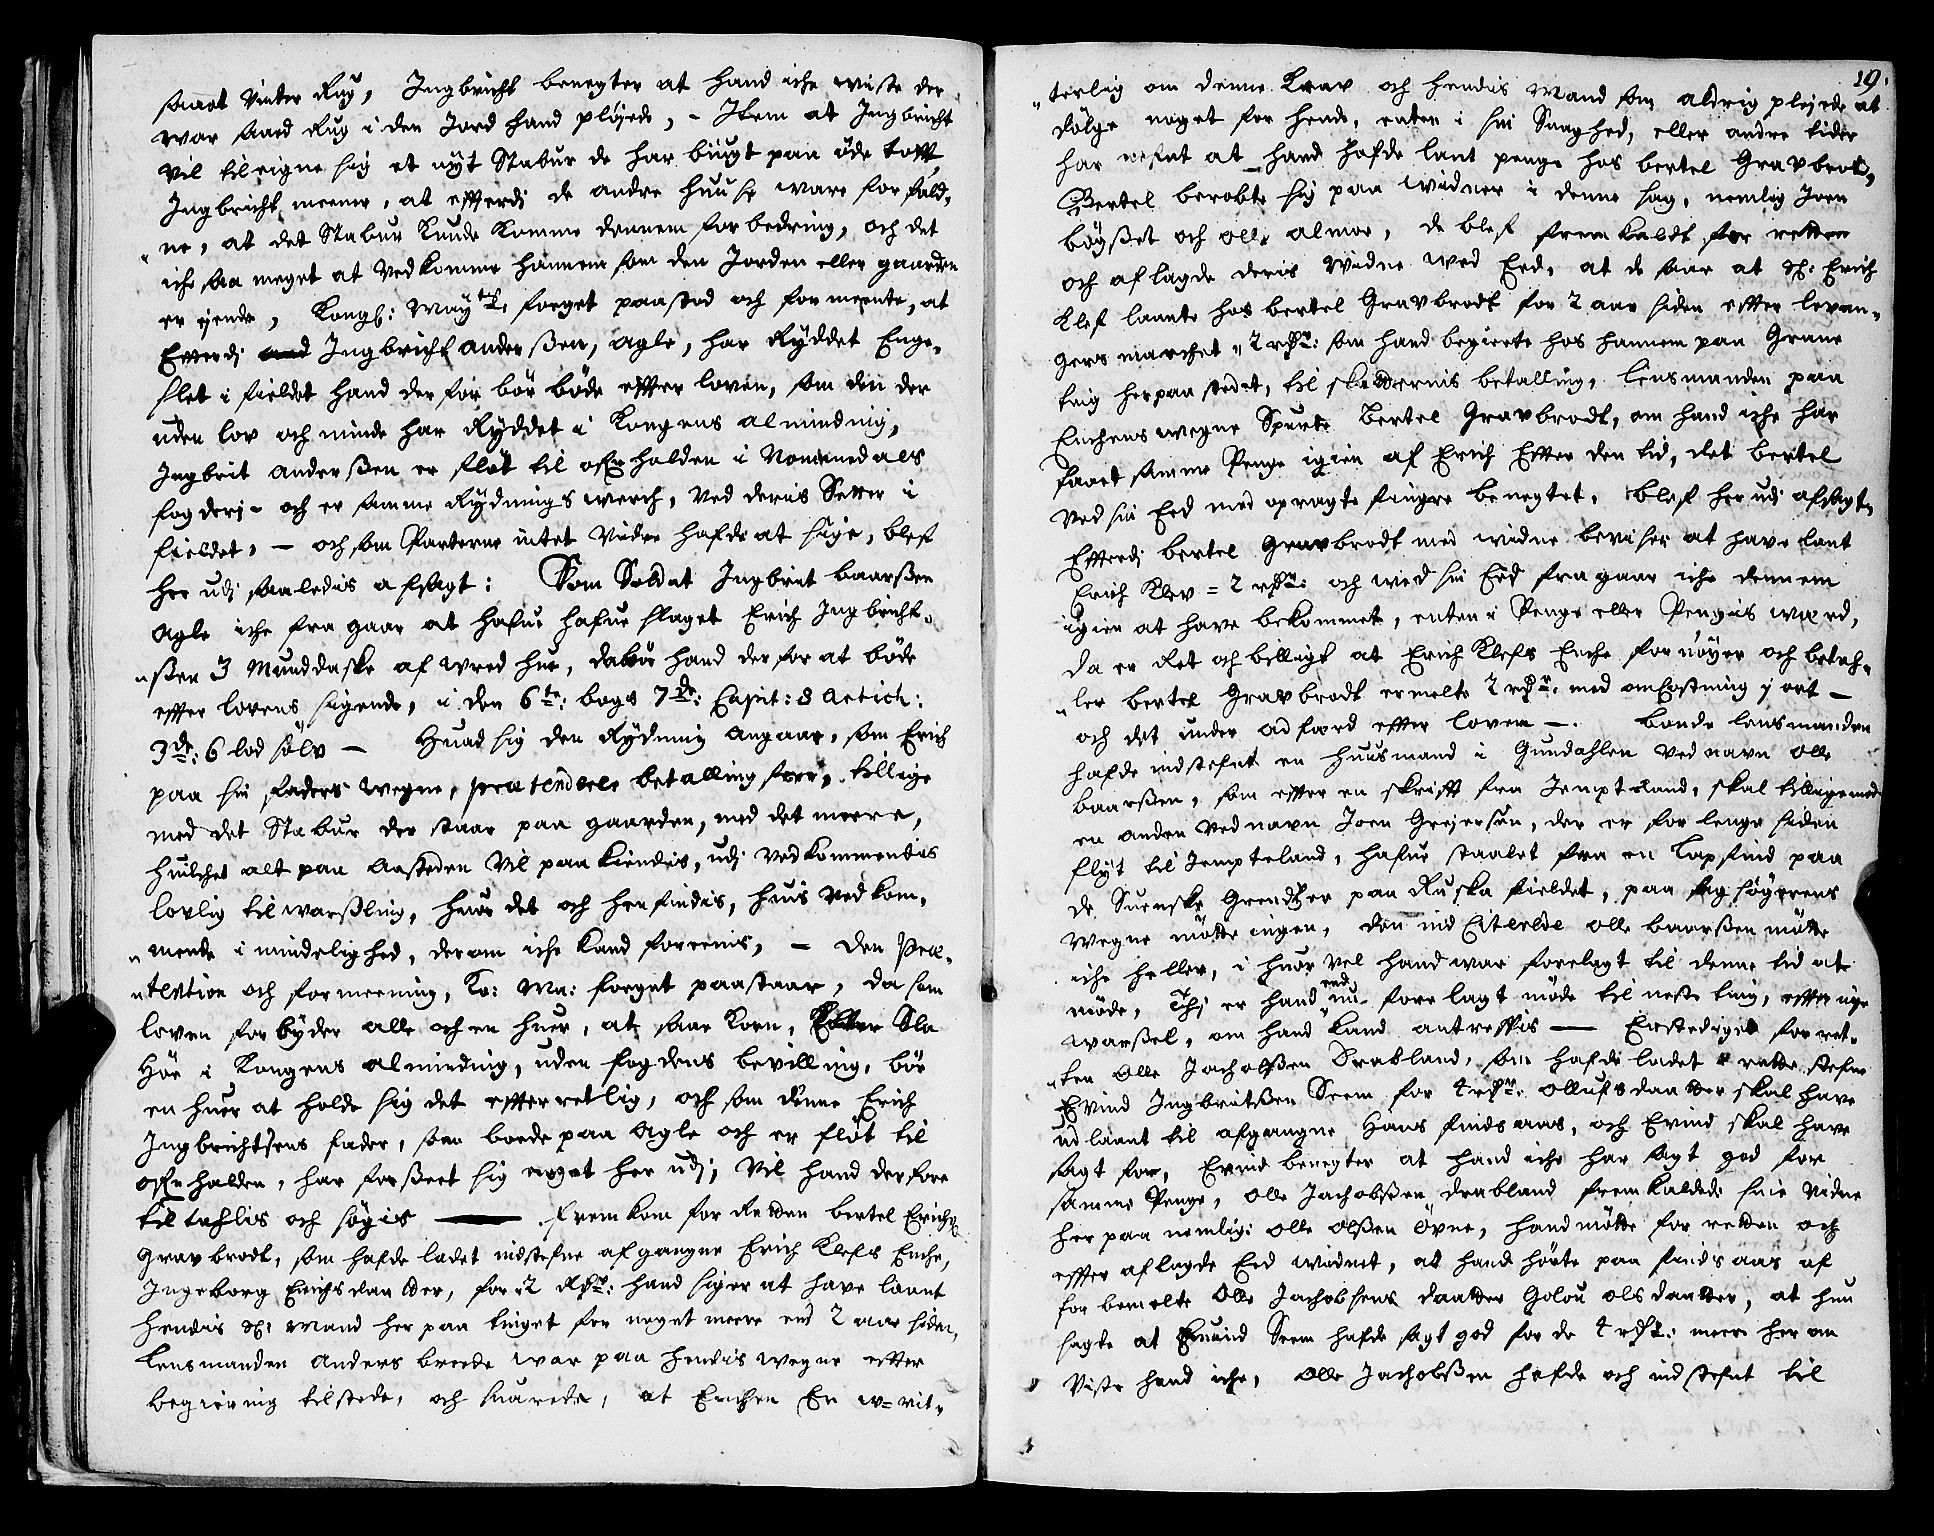 saaet Vinter Rug, Ingbricht benegter at hand iche wiste der
war saaed Rug i den Jord hand pløjede, - Item at Ingbricht
vil tileigne sig et nyt Stabur de har bügt paa øde toft,
Ingbricht meener, at efterdj de andre huuse ware forfald,
"ne, at det Stabur kunde komme dennem forbedring, och det
iche saa meget at vedkomme hannem som den Jorden eller gaarden
er ejende, Kongl: Maytz foget paastod och formeente, at
Efterdj Ingbricht Anderßen, Agle, har Ryddet Enge,
slet i fieldet hand derfor bør bøde effter loven, som den der
uden lov och minde har Ryddet i Kongens alminding,
Ingbrit Anderßen er fløt til ofverhalden i Nommedals
fogderj - och er samme Rydnings werch, ved deris Setter i
fieldet, - och som Parterne intet videre hafde at sige, blef
her udj saaledis afsagt: Som Soldat Ingbrit Baarßen
Agle iche fragaar at hafue hafue slaget Erich Ingbricht,
"ßen 3 Munddaske af wred hue, da bør hand derfor at bøde
effter lovens sigende, i den 6te: bogs 7de: Capit: 8 Artich:
3de: 6 lod sølv - Huad sig den Rydning angaar, som Erich
paa sin faders wegne, prætenderer betalling for, tillige
med det Stabur der staar paa gaarden, med det meere,
huilchet alt paa Aasteden vil paakiendis, udj vedkommendis
lovlig tilwarßling, huor det och henfindis, huis vedkom,
"mende i mindelighed, derom iche kand foreenis, - den Præ,
"tention och formeening, Ko: Ma: foget paastaar, da som
loven forbyder alle och en huer, at saae Korn, Eller Sla
Høe i Kongens alminding, uden fogdens bevilling, bør
en huer at holde sig det effterretlig, och som denne Erich
Ingbrichtsens fader, som boede paa Agle och er fløt til
ofverhalden, har forßeet sig noget her udj, vil hand derfore
tiltahlis och søgis - fremkom for Retten bertel Erichß
Gravbrodt, som hafde ladet indstefne afgangne Erich Klefs Enche,
Ingeborg Erichsdaatter, for 2 Rdr: hand siger at have laant
hendis Sl: Mand her paa tinget for noget meere end 2 aar siden,
lensmanden Anders breede war paa hendis wegne effter
begiering tilstede, och suarede, at Enchen Er w=vit,
19.
"terlig om denne Krav och hendis Mand som aldrig plejede at
dølge noget for hende, enten i sin Suaghed, eller andre tider
har nefnt at hand hafde lant penge hos bertel Gravbrot,
Bertel berobte sig paa widner i denne sag, nemlig Joen
bøyßet och olle almoe, de blef fremkaldt for retten
och aflagde deris Widne wed Eed, at de saae at Sl: Erich
Klef laante hos bertel Gravbrodt for 2 aar siden effter levan,
gers marchet, 2 rdr: som hand begierte hos hannem paa Grane
ting her paa stedet, til skatternis betalling, lensmanden paa
Enchens wegne Spurte Bertel Gravbrodt, om hand iche har
faaet samme Penge igien af Erich Efter den tid, det bertel
ved sin Eed med opragte fingre benegtet, blef her udj afsagt,
Efterdj bertel Gravbrodt med widne beviser at have lant
Erich Klev = 2 rdr: och wed sin Eed fragaar iche dennem
igien at have bekommet, enten i Penge eller Pengis værd,
da er Ret och billigt at Erich Klefs Enche fornøyer och betah,
"ler bertel Gravbrodt ermelte 2 rdr: med omkostning j ort -
och det under adfærd effter loven -. bonde lensmanden
hafde indstefnt en huusmand i Gundahlen ved navn olle
baarßen, som effter en skrifft fra Jempteland, skal tilligemed
en anden ved navn Joen Grejersen, der er for lenge siden
flyt til Jempteland, hafue staalet fra en Lapfind paa
de Suenske Grendtzer paa Ruska fieldet, paa sagsøgerens
wegne møtte ingen, den ind Citerede olle baarßen møtte
iche heller, i huor vel hand war forelagt til denne tid at
møde, Thj er hand endnu forelagt møde til neste ting, effter nye
warßel, om hand kand antreffis - Enstediget for ret,
"ten olle Jachobßen Drabland, som hafde ladet stefne
Evind Ingbritßen Seem for 4 rdr: ollufsdaatter skal have
udlaant til afgangne Hans findsaas, och Evind skal have
sagt for, Evind benegter at hand iche har sagt god for
samme Penge, olle Jachobßen drabland fremkaldede sine vidne
her paa nemlig: olle olßen Øvne, hand møtte for retten och
effter aflagde Eed widnet, at hand hørte paa findsaas af
forbemelte Olle Jachobsens daatter Golou olsdaatter, at hun
sagde at Evind Seem hafde sagt god for de 4 rdr: meere her om
viste hand iche, Olle Jachobßen hafde och indstefnt til